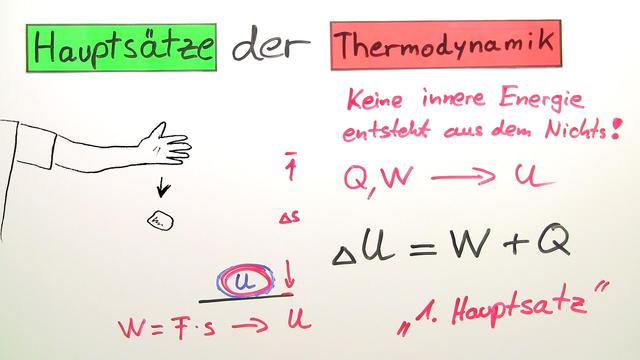 Hauptsätze der Thermodynamik
Keine innere Energie
entsteht aus dem Nichts!
Q, W → U
Δs
ΔU = W + Q
U
W = F·s → U
„1. Hauptsatz"